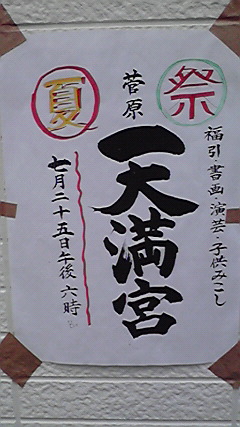 夏
祭
福引・書画・演芸・子供みこし
菅原
天満宮
七月二十五日午後六時